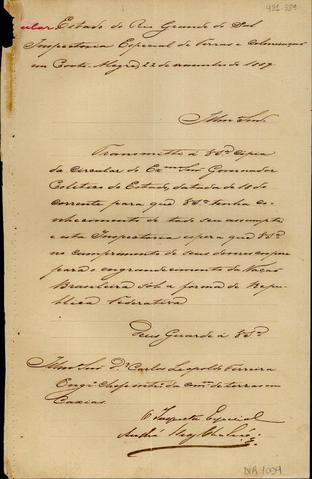 431.389
ular. Estado do Rio Grande do Sul
Inspectoria Especial de Terras e Colonisação
em Porto Alegre, 22 de novembro de 1889
Illmo Snr.
Transmitto á VSª copia
da circular do Exmo Snr Governador
Politico do Estado, datada de 18 do
corrente para que VSª tenha co-
nhecimento de todo seu assumpto
e esta Inspectoria espera que VSª
no cumprimento de seus deveres
para o engrandecimento da Nação
Brasileira sob a forma de Repu-
blica Federativa
Deus Guarde á VSª
Illmo Snr Dr Carlos Leopoldo Ferreira
Engº Chefe da comm de terras em
Caxias.
O Inspector Especial
André
DIR 1094